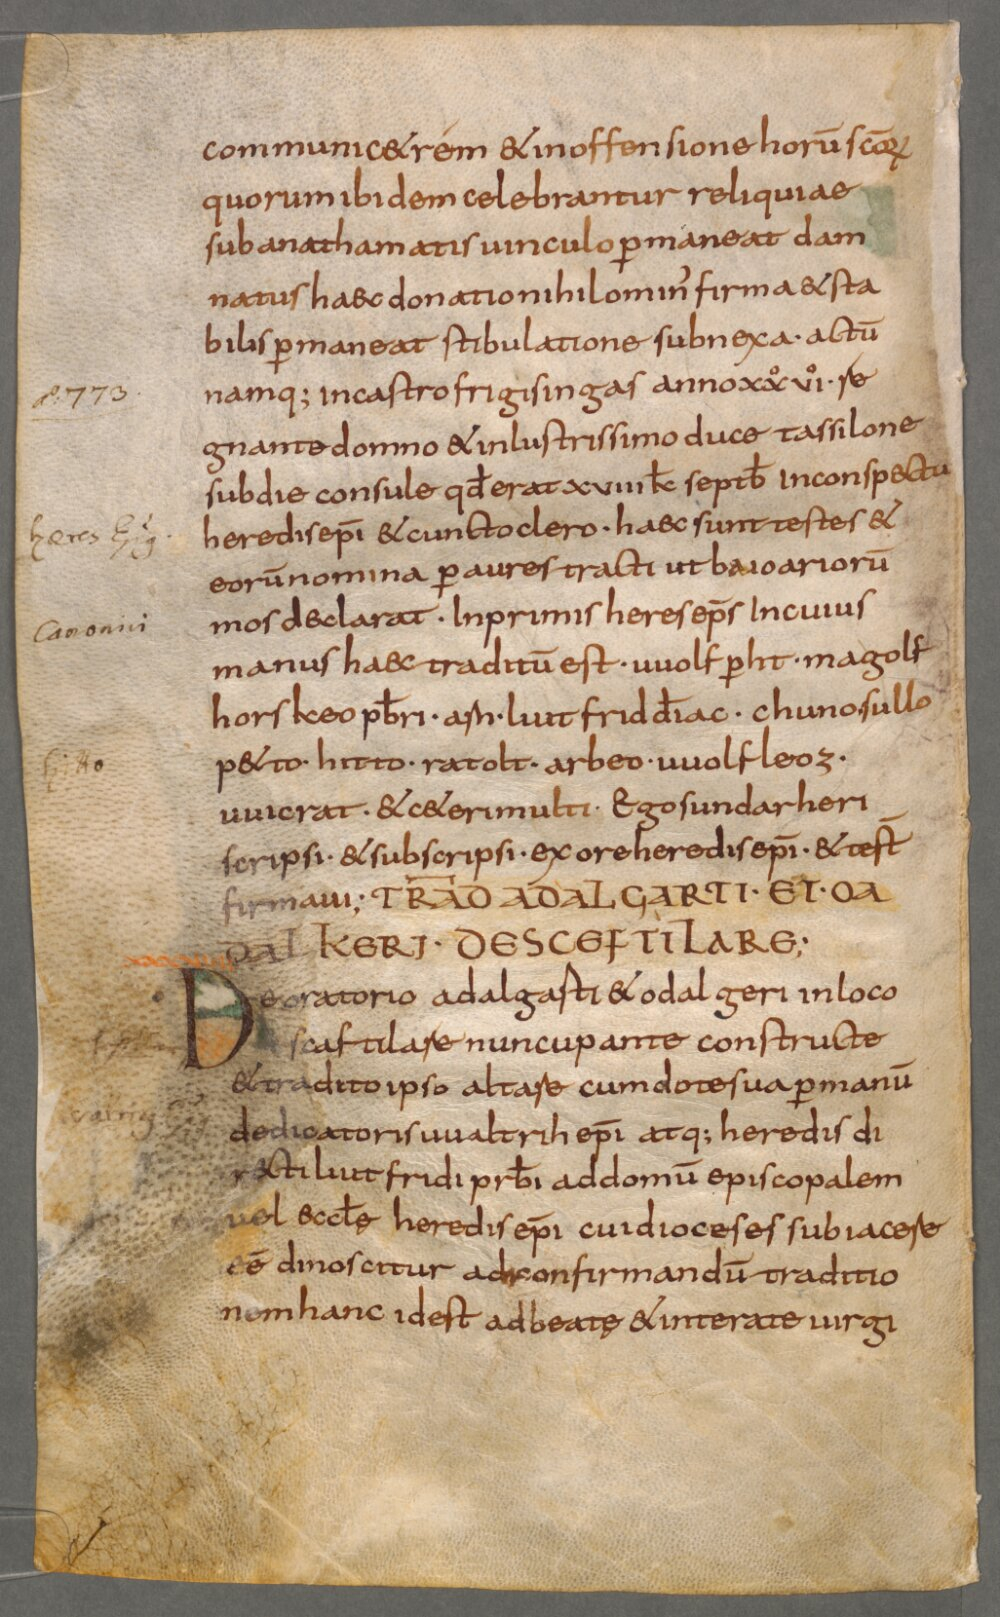 communic&rem & inoffensione horū scōꝝ
quorum ibidem celebrantur reliquiae
sub anathamatis uinculo ꝑmaneat dam
natus haec donatio nihilomin᾽ firma & sta
bilis ꝑmaneat stibulatione subnexa · actū
a. 1773.
namq; in castro frigisingas anno xx̊ vi̊ · re
gnante domno & inlustrissimo duce tassilone
sub die consule qđ erat xviiii kł septƀ In conspectu
heredis ep̄i & cuncto clero · haec sunt testes &
eorū nomina ꝑ aures tracti ut baioariorū
Canonici
mos declarat · Inprimis heres ep̄s In cuius
manus haec traditū est · uuolf ꝑht · magolf
horskeo pƀri · asħ · liutfrid điac · chuno sullo
hitto
p&to · hitto · ratolt · arbeo · uuolfleoz ·
uuicrat · & c&eri multi · Ego sundarheri
scripsi · & subscripsi · ex ore heredis ep̄i · & test̄
firmaui; TRAD ADALGARTI · ET · OA
DALKERI · DESCEFTILARE;
De oratorio adalgasti & odalgeri in loco
scaftilare nuncupante constructe
& tradito ipso altare cum dote sua ꝑ manū
dedicatoris uualtrih ep̄i atq; heredis di
recti liutfridi prƀi ad domū episcopalem
uel eccłę heredis ep̄i cui dioceses subiacere
eē dinoscitur ad confirmandū traditio
nem hanc id est ad beatę & interate uirgi